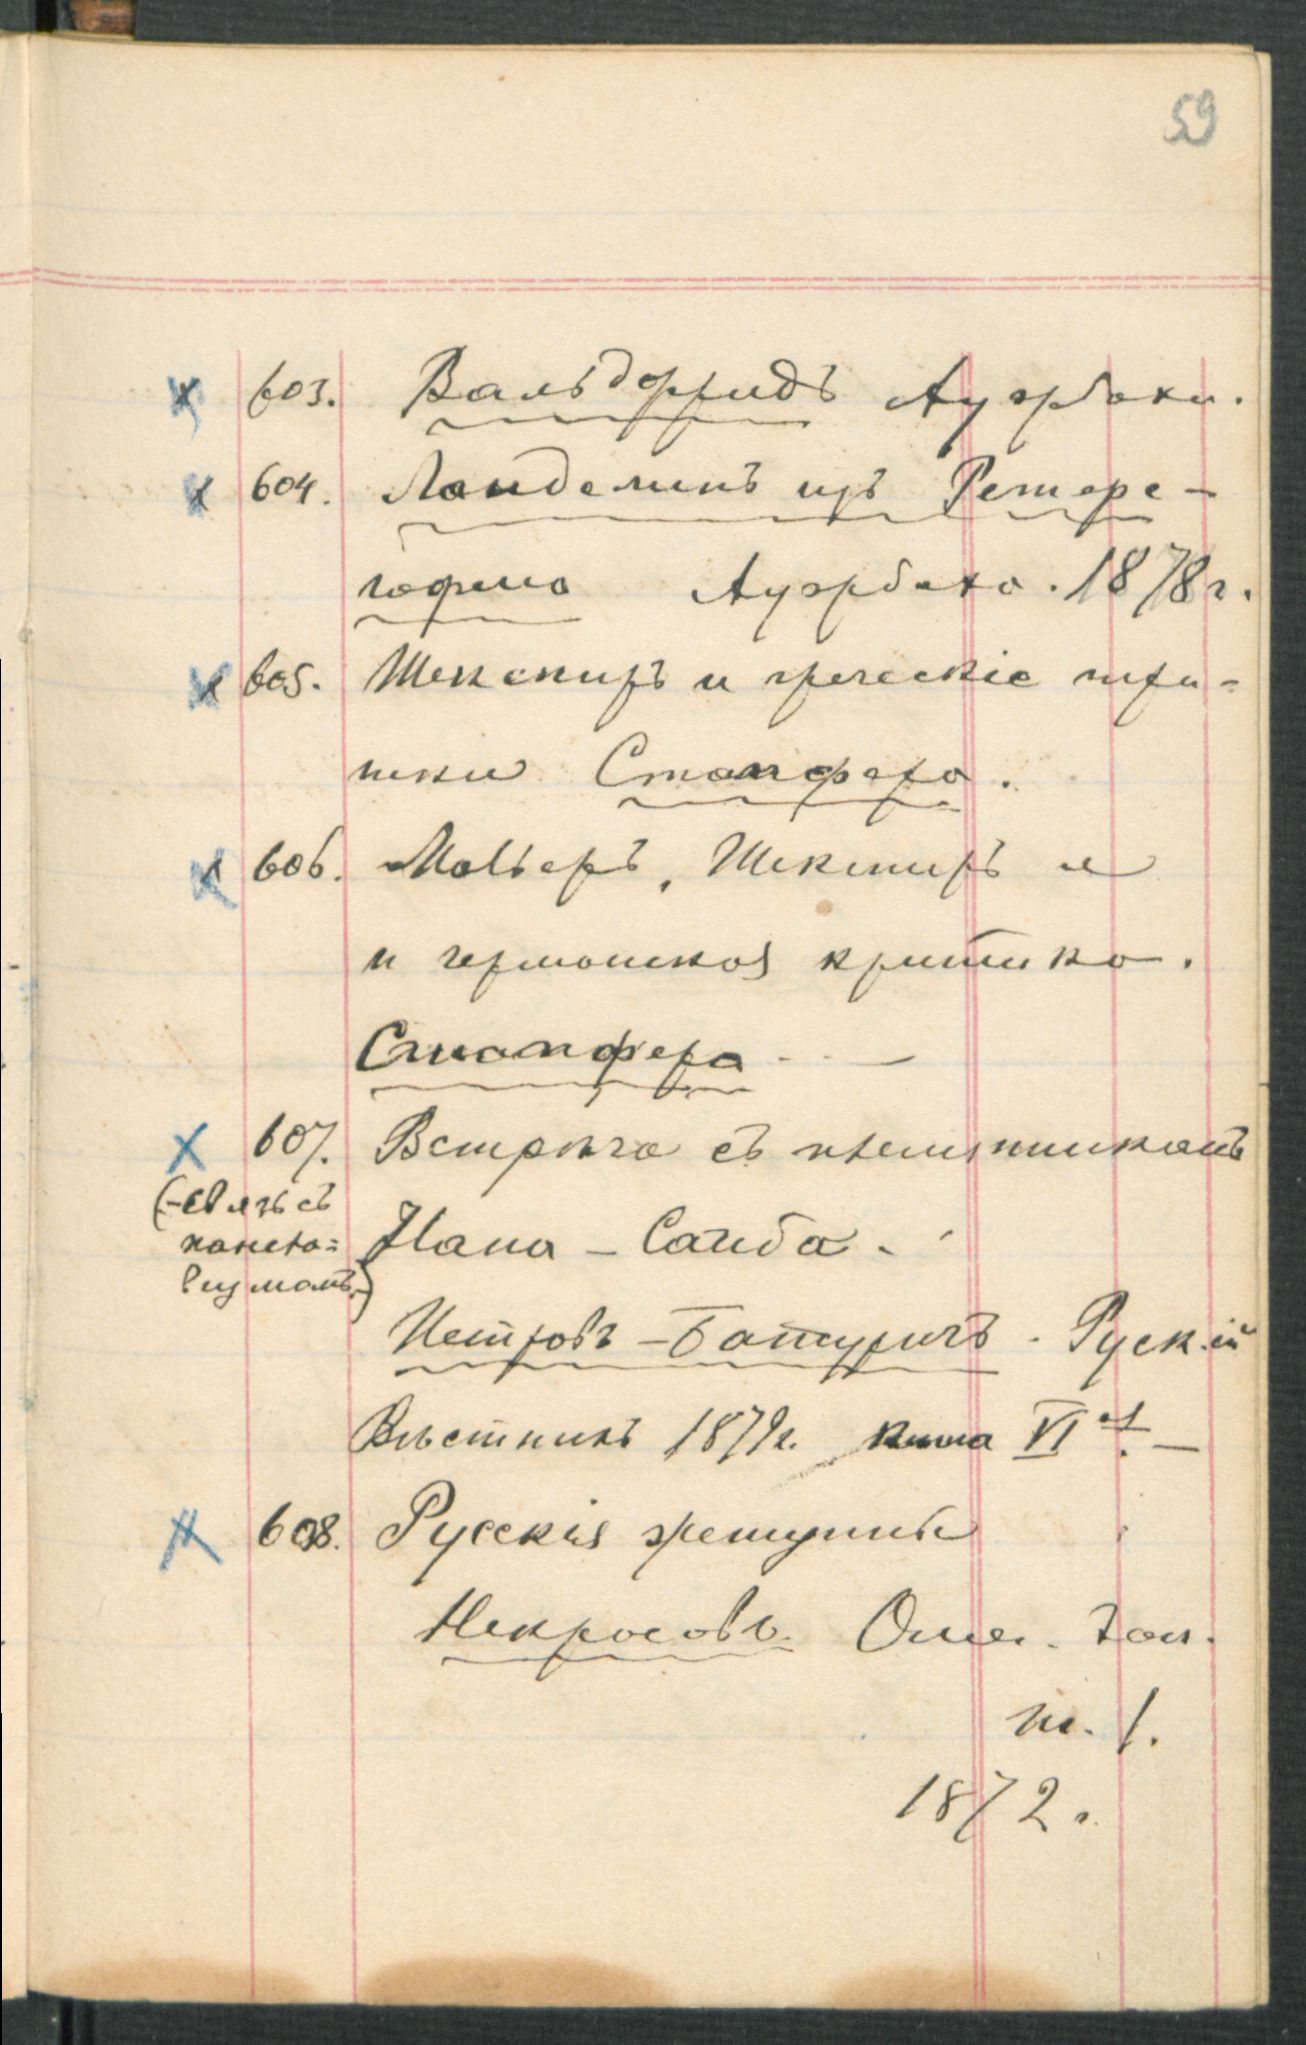 59
603. Вальдфридъ Ауэрбаха.
604. Ланделинъ изъ Ретере-
гофена Ауэрбаха. 1878 г.
605. Шекспиръ и греческіе тра-
гики Стапфера.
606. Мольеръ, Шекспиръ и
и германская критика.
Стапфера —
607. Встрѣча съ племянникомъ
(-связь съ
Нана - Саиба.
Петровъ - Батуричъ. Руск.ій
Вѣстникъ 1879 г. книга VI ая —
608. Русскія женщины
Некрасовъ. Отеч. Зап.
т. 1.
1872 г.